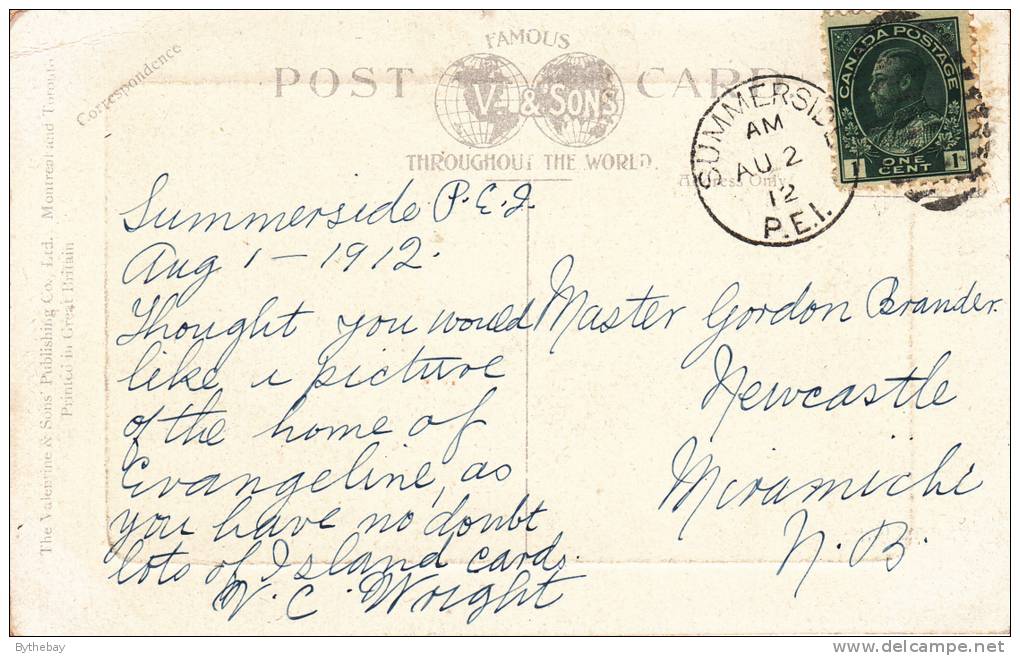 FAMOUS
POST CARD
V. & SONS
THROUGHOUT THE WORLD.
Correspondence
Address Only
CANADA POSTAGE
1 ONE CENT 1
SUMMERSIDE
AM
AU 2
12
P.E.I.
The Valentine & Sons' Publishing Co., Ltd. Montreal and Toronto.
Printed in Great Britain
Summerside P.E.I
Aug 1 - 1912.
Thought you would
like a picture
of the home of
Evangeline, as
you have no doubt
lots of Island cards.
V. C. Wright
Master Gordon Brander.
Newcastle
Miramichi
N. B.
Bythebay
delcampe.net